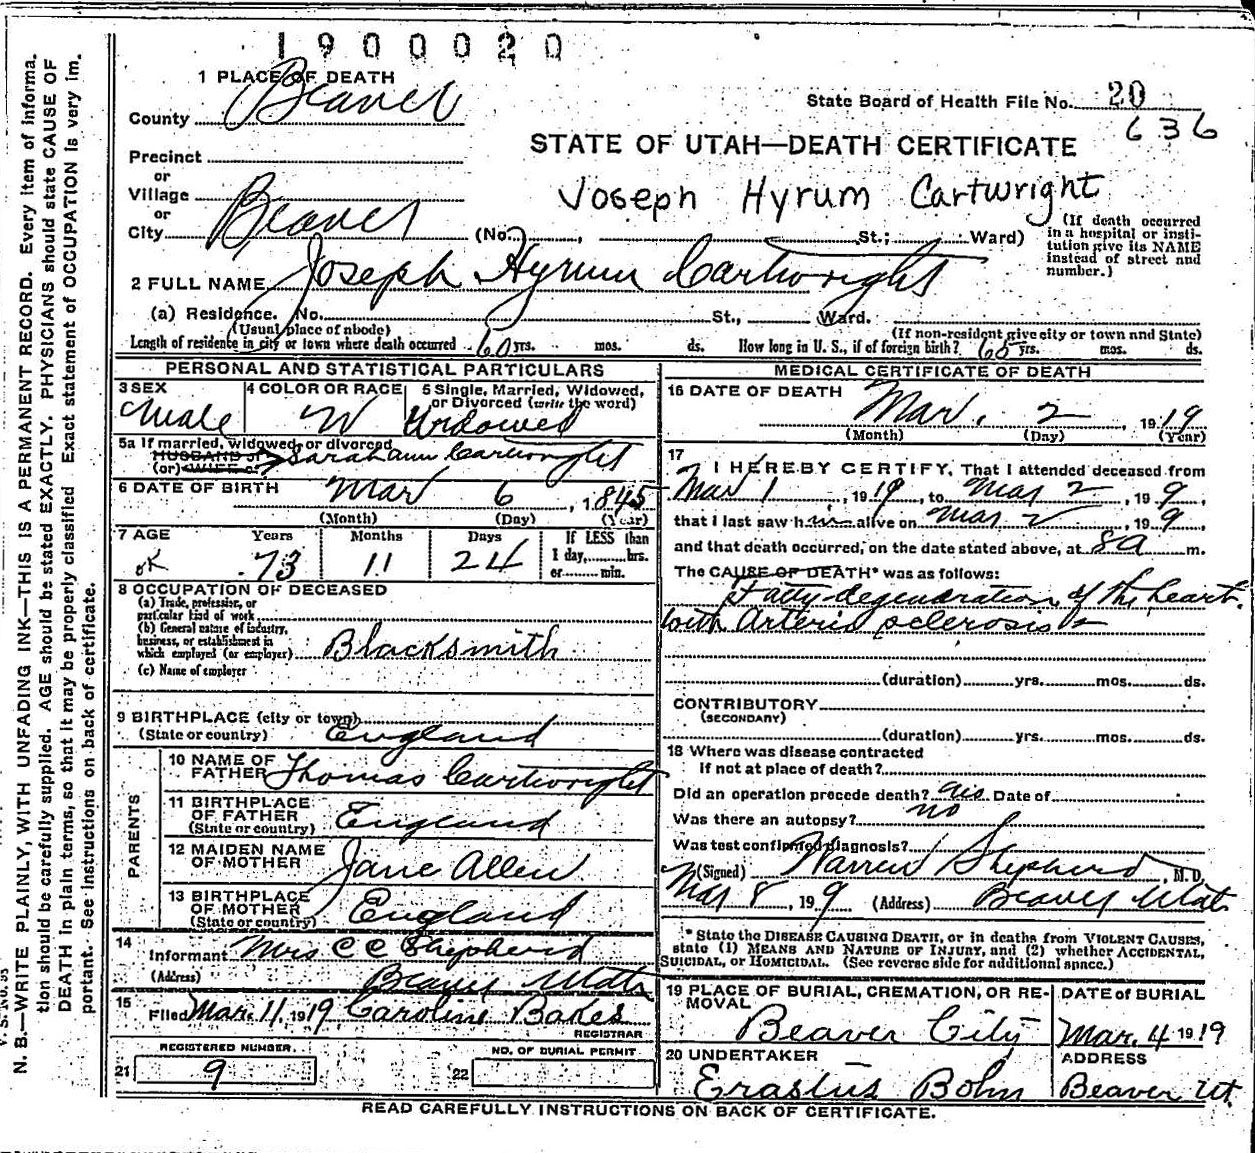 1900020
1 PLACE OF DEATH
County Beaver
State Board of Health File No. 20
636
STATE OF UTAH—DEATH CERTIFICATE
Joseph Hyrum Cartwright
Precinct
or
Village
or
City Beaver (No. , St.; Ward)
(If death occurred in a hospital or institution give its NAME instead of street and number.)
2 FULL NAME Joseph Hyrum Cartwright
(a) Residence. No. St., Ward.
(Usual place of abode) (If non-resident give city or town and State)
Length of residence in city or town where death occurred 60 yrs. mos. ds. How long in U. S., if of foreign birth? 65 yrs. mos. ds.
PERSONAL AND STATISTICAL PARTICULARS
3 SEX Male
4 COLOR OR RACE W
5 Single, Married, Widowed, or Divorced (write the word) Widowed
5a If married, widowed, or divorced
HUSBAND of
(or) WIFE of Sarah ann Cartwright
6 DATE OF BIRTH Mar 6, 1845
(Month) (Day) (Year)
7 AGE Years Months Days If LESS than
ok 73 11 24 1 day, hrs.
or min.
8 OCCUPATION OF DECEASED
(a) Trade, profession, or
particular kind of work
(b) General nature of industry,
business, or establishment in
which employed (or employer) Blacksmith
(c) Name of employer
9 BIRTHPLACE (city or town)
(State or country) England
PARENTS
10 NAME OF
FATHER Thomas Cartwright
11 BIRTHPLACE
OF FATHER
(State or country) England
12 MAIDEN NAME
OF MOTHER Jane Allen
13 BIRTHPLACE
OF MOTHER
(State or country) England
14
Informant Mrs C C Shepherd
(Address) Beaver Utah
15
Filed Mar. 11, 1919 Caroline Bakes
REGISTRAR
REGISTERED NUMBER.
21 9
NO. OF BURIAL PERMIT
22
MEDICAL CERTIFICATE OF DEATH
16 DATE OF DEATH Mar. 2, 1919
(Month) (Day) (Year)
17
I HEREBY CERTIFY, That I attended deceased from
Mar 1, 1919, to Mar 2, 199,
that I last saw him alive on Mar 2, 199,
and that death occurred, on the date stated above, at 8 a m.
The CAUSE OF DEATH* was as follows:
Fatty degeneration of the heart.
with Arterio sclerosis
(duration) yrs. mos. ds.
CONTRIBUTORY
(SECONDARY)
(duration) yrs. mos. ds.
18 Where was disease contracted
If not at place of death?
Did an operation precede death? Date of
Was there an autopsy? no
Was test confirmed diagnosis?
(Signed) Warren Shepherd, M. D.
Mar 8, 199 (Address) Beaver Utah
* State the DISEASE CAUSING DEATH, or in deaths from VIOLENT CAUSES,
state (1) MEANS AND NATURE OF INJURY, and (2) whether ACCIDENTAL,
SUICIDAL, or HOMICIDAL. (See reverse side for additional space.)
19 PLACE OF BURIAL, CREMATION, OR RE-
MOVAL
Beaver City
DATE of BURIAL
Mar. 4 1919
20 UNDERTAKER
Erastus Bohn
ADDRESS
Beaver Ut.
READ CAREFULLY INSTRUCTIONS ON BACK OF CERTIFICATE.
V. S. No. 95
N. B.—WRITE PLAINLY, WITH UNFADING INK—THIS IS A PERMANENT RECORD. Every item of informa-
tion should be carefully supplied. AGE should be stated EXACTLY. PHYSICIANS should state CAUSE OF
DEATH in plain terms, so that it may be properly classified. Exact statement of OCCUPATION is very im-
portant. See instructions on back of certificate.